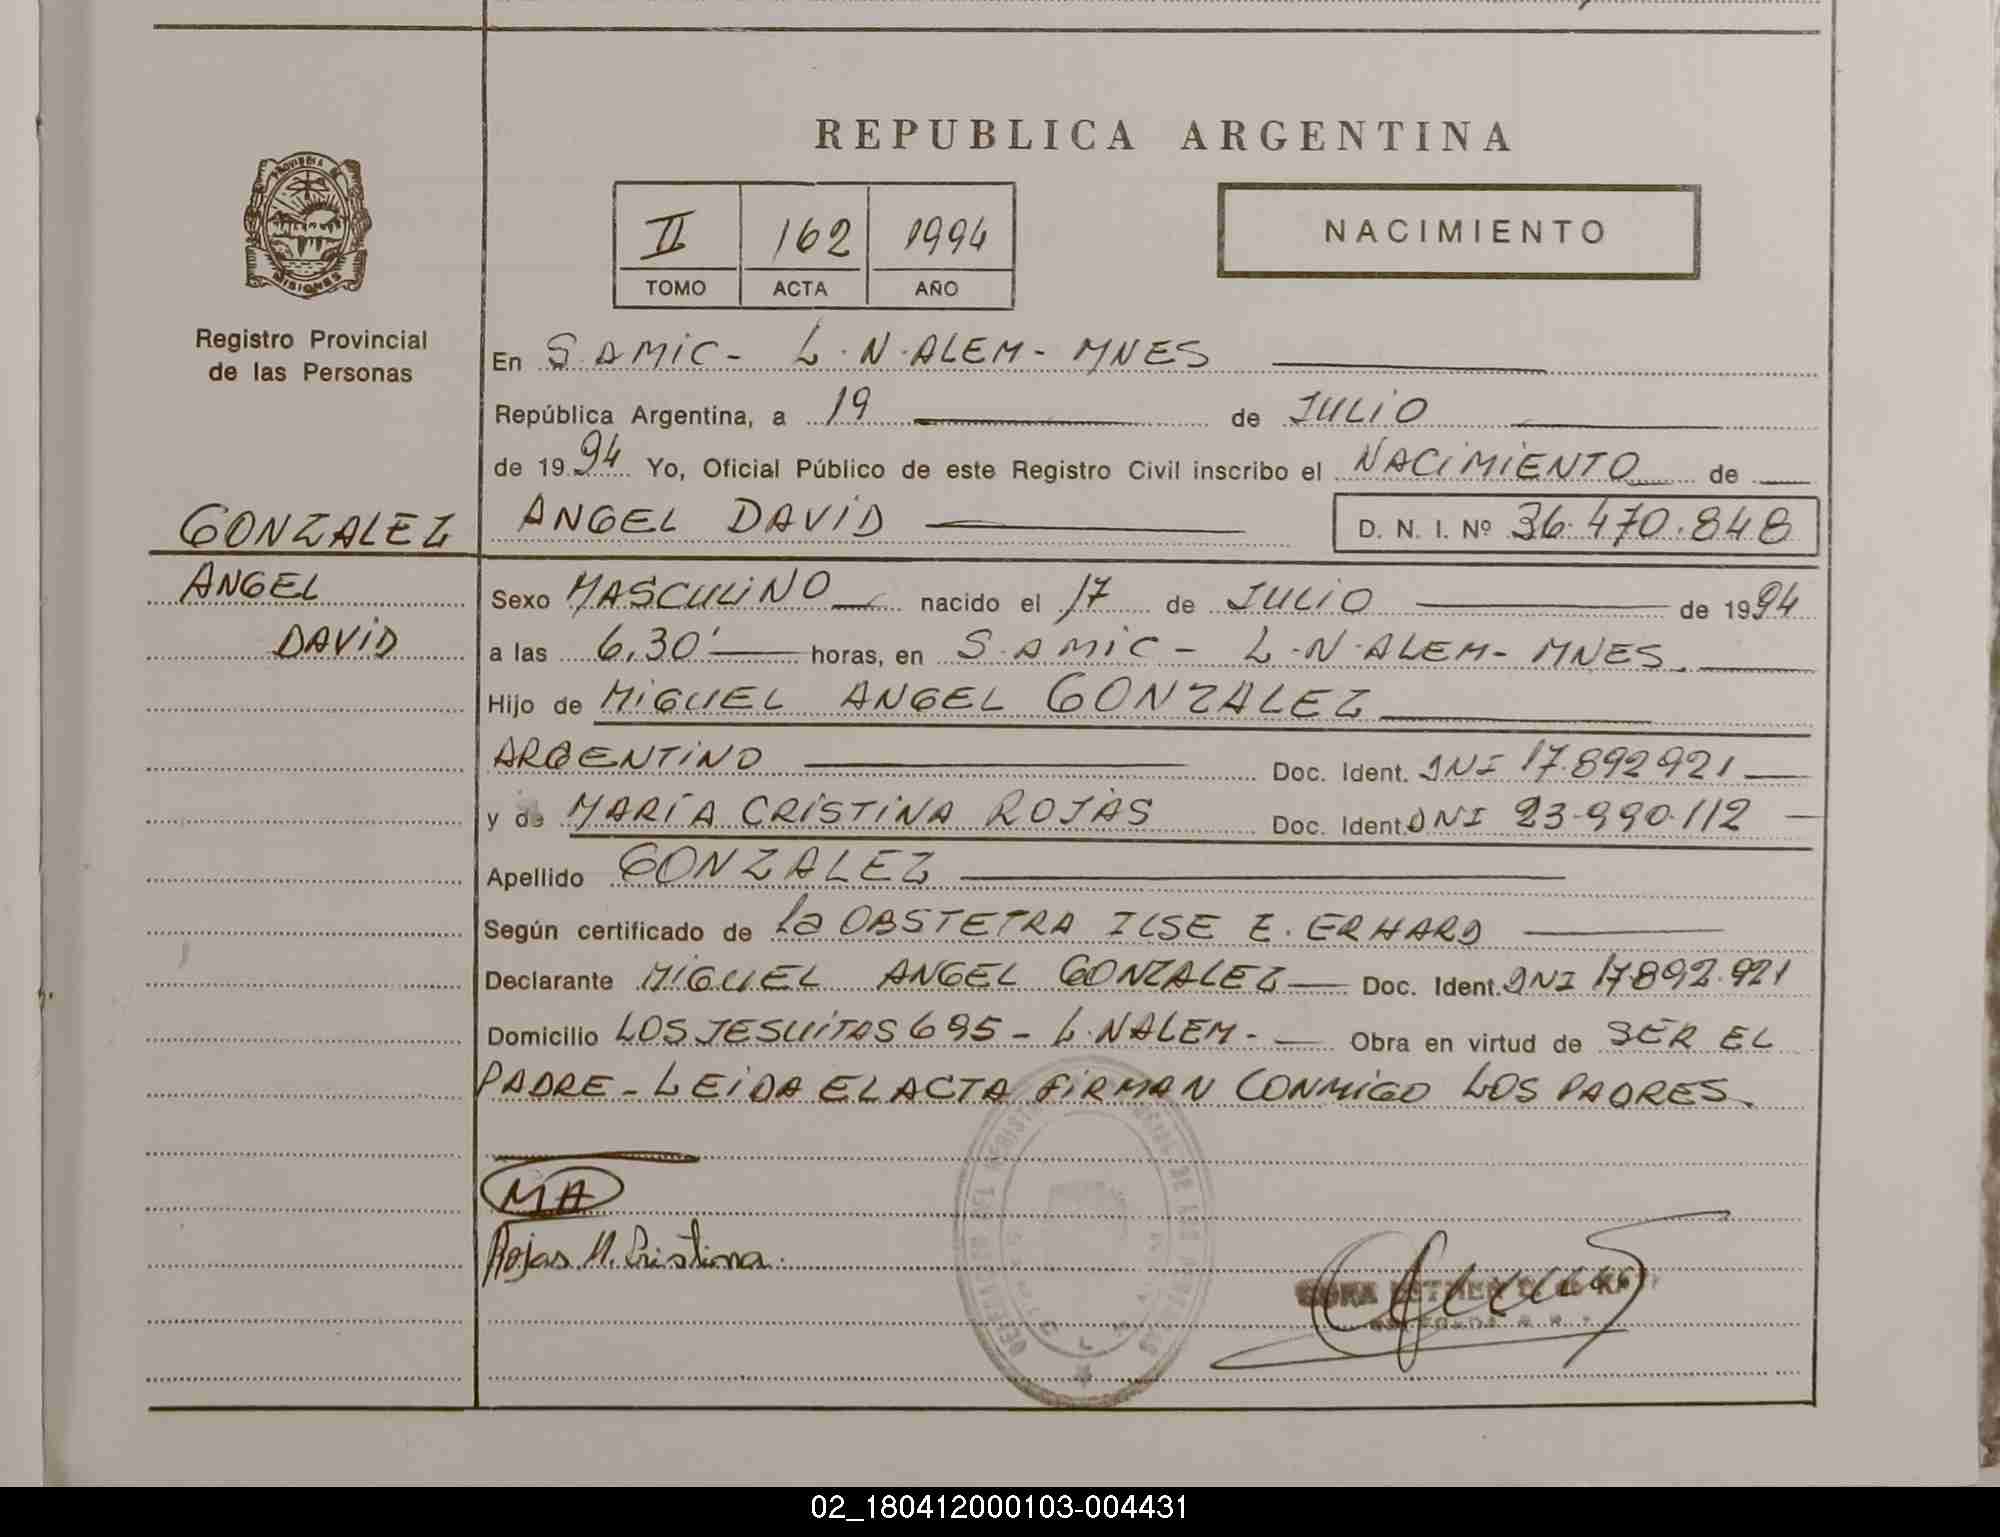 REPUBLICA ARGENTINA
PROVINCIA
MISIONES
Registro Provincial
de las Personas
II 162 1994
TOMO ACTA AÑO
NACIMIENTO
En S.AMIC - L.N.ALEM - MNES
República Argentina, a 19 de JULIO
de 1994 Yo, Oficial Público de este Registro Civil inscribo el NACIMIENTO de
GONZALEZ ANGEL DAVID D. N. I. Nº 36.470.848
ANGEL
DAVID
Sexo MASCULINO nacido el 17 de JULIO de 1994
a las 6,30' horas, en S.AMIC - L.N.ALEM - MNES.
Hijo de MIGUEL ANGEL GONZALEZ
ARGENTINO Doc. Ident. DNI 17.892.921
y de MARÍA CRISTINA ROJAS Doc. Ident. DNI 23.990.112
Apellido GONZALEZ
Según certificado de La OBSTETRA ILSE E. ERHARD
Declarante MIGUEL ANGEL GONZALEZ Doc. Ident. DNI 17892.921
Domicilio LOS JESUITAS 695 - L.N.ALEM. - Obra en virtud de SER EL
PADRE - LEIDA EL ACTA FIRMAN CONMIGO LOS PADRES.
MA
Rojas M. Cristina.
02_180412000103-004431